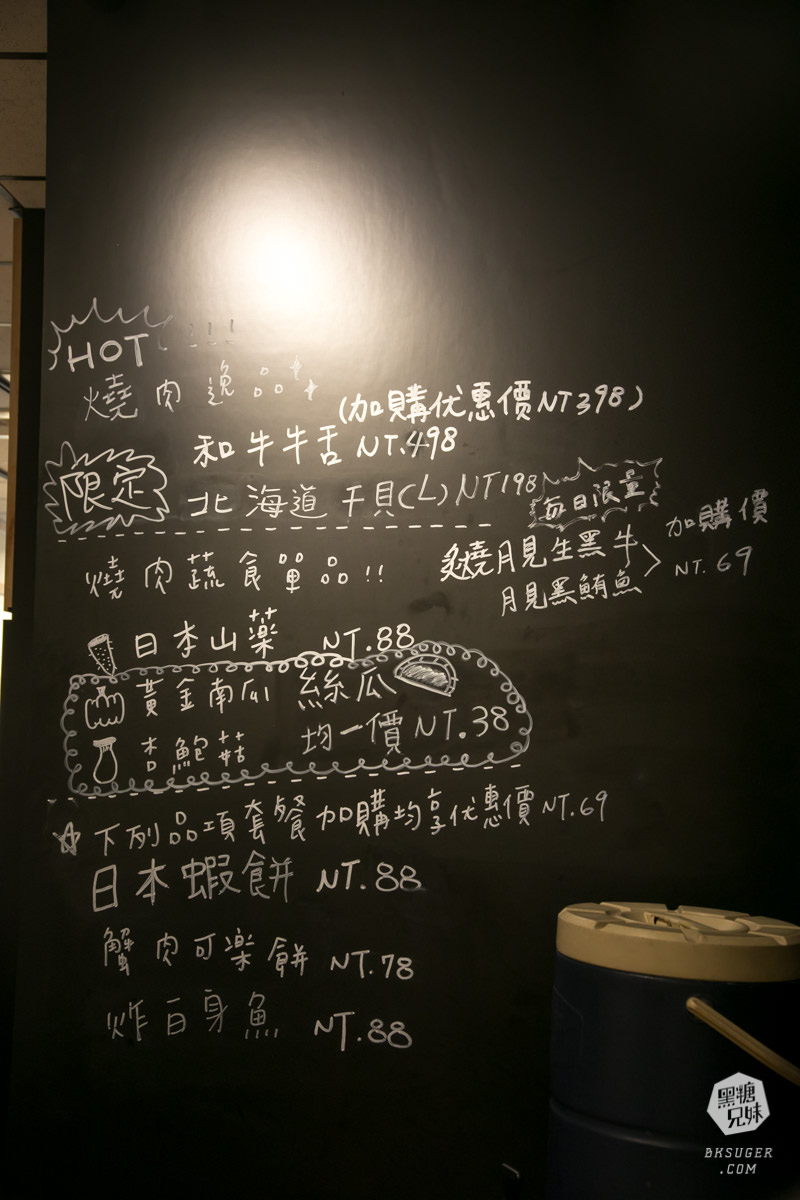 HOT !!!
燒肉逸品
(加購优惠價NT398)
限定
和牛牛舌 NT.498
北海道干貝(L) NT198
每日限量
燒肉蔬食單品!!
炙燒月見生黑牛
月見黑鮪魚
加購價
NT. 69
日本山藥 NT.88
黃金南瓜 絲瓜
杏鮑菇 均一價 NT.38
下列品項套餐加購均享优惠價 NT.69
日本蝦餅 NT.88
蟹肉可樂餅 NT.78
炸白身魚 NT.88
黑糖
兄妹
BKSUGER
.COM